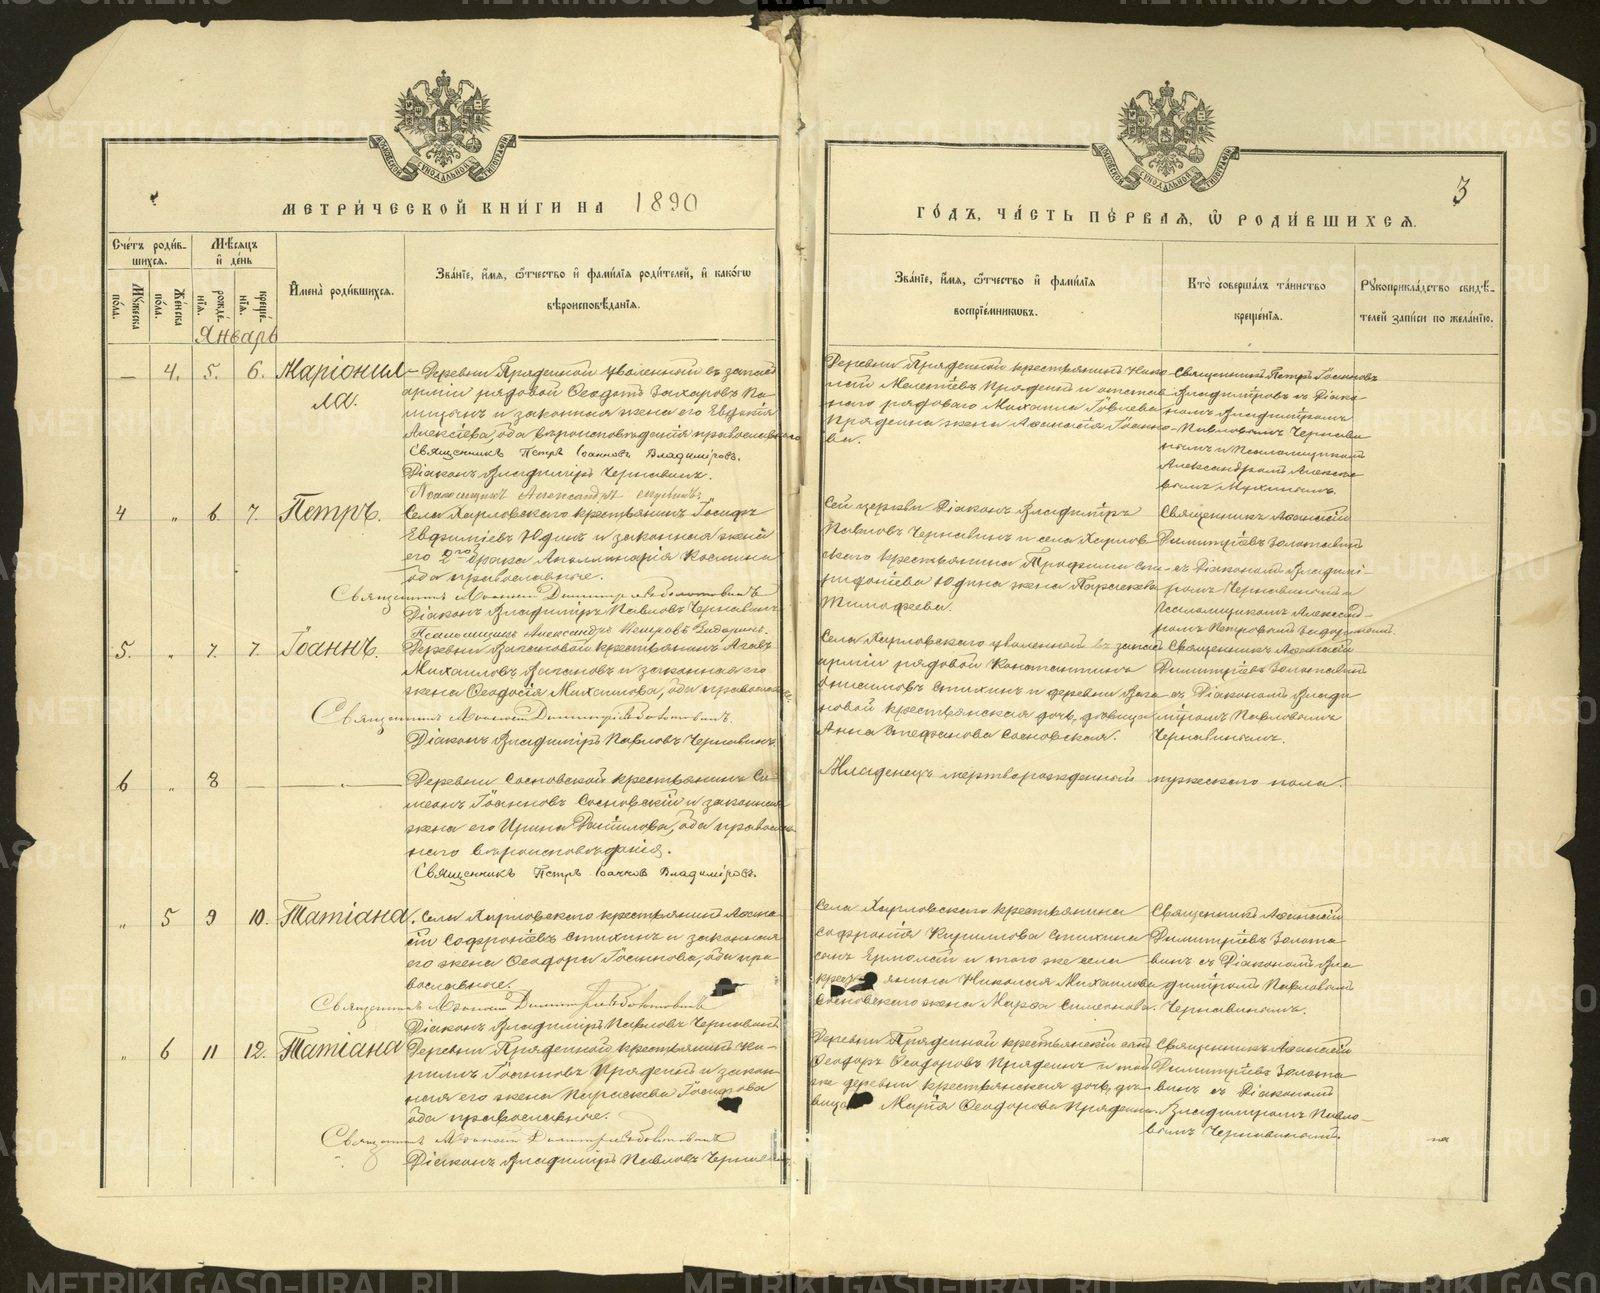 МЕТРИ́ЧЕСКОЙ КНИ́ГИ НА 1890
ГО́ДЪ, ЧА́СТЬ ПЕ́РВАЯ, Ѡ҆ РОДИ́ВШИХСЯ.
3
Сче́тъ роди́в-
шихся.
Му́жеска по́ла.
Же́нска по́ла.
Мѣ́сяцъ
и҆ де́нь
рожде́нїя.
креще́нїя.
И҆мена̀ роди́вшихся.
Зва́нїе, и҆́мя, ѻ҆́тчество и҆ фами́лїя роди́телей, и҆ како́гѡ
вѣроисповѣ́данїя.
Зва́нїе, и҆́мя, ѻ҆́тчество и҆ фами́лїя
воспрїе́мниковъ.
Кто̀ соверша́лъ та́инство
креще́нїя.
Рꙋкоприкла́дство свидѣ́-
телей за́писи по жела́нїю.
Январь
— 4. 5. 6. Маріонил-
ла.
Деревни Пряденной уволенный въ запасъ
арміи рядовой Ѳеодотъ Захаровъ
и законная жена его Евдокія
Алексіева, оба вѣроисповѣданія православнаго
Священникъ Петръ Іоанновъ Владиміровъ.
Діаконъ Владиміръ Чернавинъ.
Псаломщикъ Александръ
Деревни Пряденной крестьянинъ
Мелетіевъ Пряденъ и отстав-
наго рядоваго Михаила Іовлева
Прядеина жена Аѳанасія Іоанно-
ва.
Священникъ Петръ Іоанновъ
Владиміровъ съ Діако-
номъ Владиміромъ
Павловымъ Чернави-
нымъ и Псаломщикомъ
Александромъ Алексѣе-
вымъ
4 „ 6. 7. Петръ.
Села Харловскаго крестьянинъ Іосифъ
Евфиміевъ Юдинъ и законная жена
его 2го брака Аполлинарія Космина
оба православные.
Священникъ Аѳанасій Димитріевъ Золотавинъ
Діаконъ Владиміръ Павловъ Чернавинъ
Псаломщикъ Александръ Петровъ
Сей церкви Діаконъ Владиміръ
Павловъ Чернавинъ и села Харлов-
скаго крестьянина Трофима Спи-
ридонова Юдина жена Параскева
Тимофеева.
Священникъ Аѳанасій
Димитріевъ Золотавинъ
съ Діакономъ Владимі-
ромъ Чернавинымъ и
Псаломщикомъ Алексан-
дромъ Петровымъ
5. „ 7. 7. Іоаннъ.
Деревни Вагановой крестьянинъ
Михаиловъ Вагановъ и законная его
жена Ѳеодосія Михаилова, оба православ
Священникъ Аѳанасій Димитріевъ Золотавинъ.
Діаконъ Владиміръ Павловъ Чернавинъ
Села Харловскаго уволенный въ запасъ
арміи рядовой Константинъ
Анисимовъ Стихинъ и деревни Вага-
новой крестьянская дочь, дѣвица
Анна Стефанова Сосновская.
Священникъ Аѳанасій
Димитріевъ Золотавинъ
съ Діакономъ Влади-
міромъ Павловымъ
Чернавинымъ.
6 „ 8 — —
Деревни Сосновской крестьянинъ Си-
меонъ Іоанновъ Сосновскій и законная
жена его Ирина Даніилова, оба православ-
наго вѣроисповѣданія.
Священникъ Петръ Іоанновъ Владиміровъ.
Младенецъ мертворожденный мужескаго пола.
„ 5 9 10. Татіана.
Села Харловскаго крестьянинъ Аѳана-
сій Софроніевъ Стихинъ и законная
его жена Ѳеодора Іоаннова, оба пра-
вославные.
Священникъ Аѳанасій Димитріевъ Золотавинъ
Діаконъ Владиміръ Павловъ Чернавинъ
Села Харловскаго крестьянина
Софронія Кириллова Стихина
сынъ Ермолай и того же села
крестьянина Николая Михаилова
Сосновскаго жена Марѳа Симеонова.
Священникъ Аѳанасій
Димитріевъ Золота-
винъ съ Діакономъ Вла-
диміромъ Павловымъ
Чернавинымъ.
„ 6 11 12. Татіана
Деревни Пряденной крестьянинъ Ки-
риллъ Іоанновъ Пряденъ и закон-
ная его жена Параскева Іосифова
оба православные.
Священникъ Аѳанасій Димитріевъ Золотавинъ
Діаконъ Владиміръ Павловъ Чернавинъ
Деревни Пряденной крестьянскій сынъ
Ѳеодоръ Ѳеодоровъ Пряденъ и той
же деревни крестьянская дочь, дѣ-
вица Марія Ѳеодорова Прядеина.
Священникъ Аѳанасій
Димитріевъ Золота-
винъ съ Діакономъ
Владиміромъ Павло-
вымъ Чернавинымъ.
METRIKI.GASO-URAL.RU